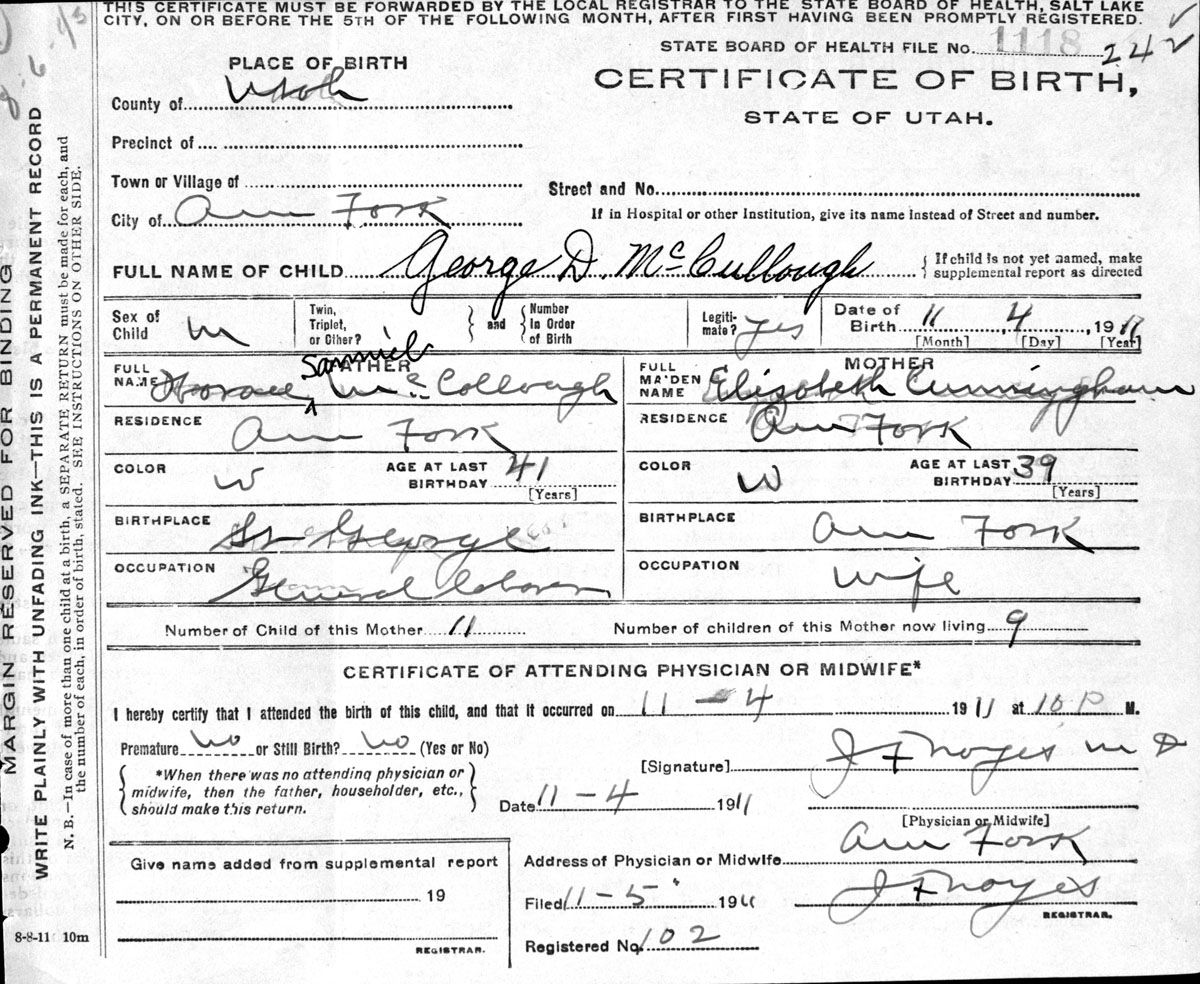 THIS CERTIFICATE MUST BE FORWARDED BY THE LOCAL REGISTRAR TO THE STATE BOARD OF HEALTH, SALT LAKE
CITY, ON OR BEFORE THE 5TH OF THE FOLLOWING MONTH, AFTER FIRST HAVING BEEN PROMPTLY REGISTERED.
STATE BOARD OF HEALTH FILE No. 1118 242
PLACE OF BIRTH
CERTIFICATE OF BIRTH,
STATE OF UTAH.
County of Utah
Precinct of
Town or Village of
Street and No.
City of Am Fork
If in Hospital or other Institution, give its name instead of Street and number.
FULL NAME OF CHILD George D. McCullough
{ If child is not yet named, make
supplemental report as directed
Sex of Child m
Twin, Triplet, or Other? } and { Number In Order of Birth
Legiti- mate? yes
Date of Birth 11, 4, 1911
[Month] [Day] [Year]
FATHER
FULL NAME Horace Samuel McCollough
RESIDENCE Am Fork
COLOR W AGE AT LAST BIRTHDAY 41 [Years]
BIRTHPLACE St George
OCCUPATION General Laborer
MOTHER
FULL MAIDEN NAME Elizabeth Cunningham
RESIDENCE Am Fork
COLOR W AGE AT LAST BIRTHDAY 39 [Years]
BIRTHPLACE Am Fork
OCCUPATION Wife
Number of Child of this Mother 11 Number of children of this Mother now living 9
CERTIFICATE OF ATTENDING PHYSICIAN OR MIDWIFE*
I hereby certify that I attended the birth of this child, and that it occurred on 11 - 4 1911 at 10 P M.
Premature No or Still Birth? No (Yes or No)
{ *When there was no attending physician or
midwife, then the father, householder, etc.,
should make this return. }
[Signature] J F Noyes M D
Date 11 - 4 1911
[Physician or Midwife]
Give name added from supplemental report
19
REGISTRAR.
Address of Physician or Midwife Am Fork
Filed 11-5 1911 J F Noyes
REGISTRAR.
Registered No. 102
8-8-11 10m
MARGIN RESERVED FOR BINDING
WRITE PLAINLY WITH UNFADING INK—THIS IS A PERMANENT RECORD
N. B.—In case of more than one child at a birth, a SEPARATE RETURN must be made for each, and
the number of each, in order of birth, stated. SEE INSTRUCTIONS ON OTHER SIDE.